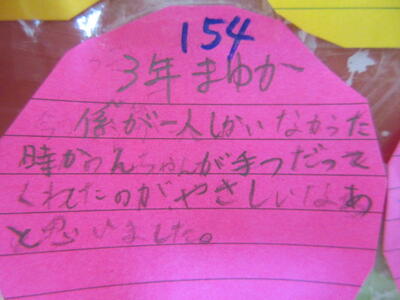 154
3年 まゆか
係が一人しかいなかった
時かのんちゃんが手つだって
くれたのがやさしいなあ
と思いました。